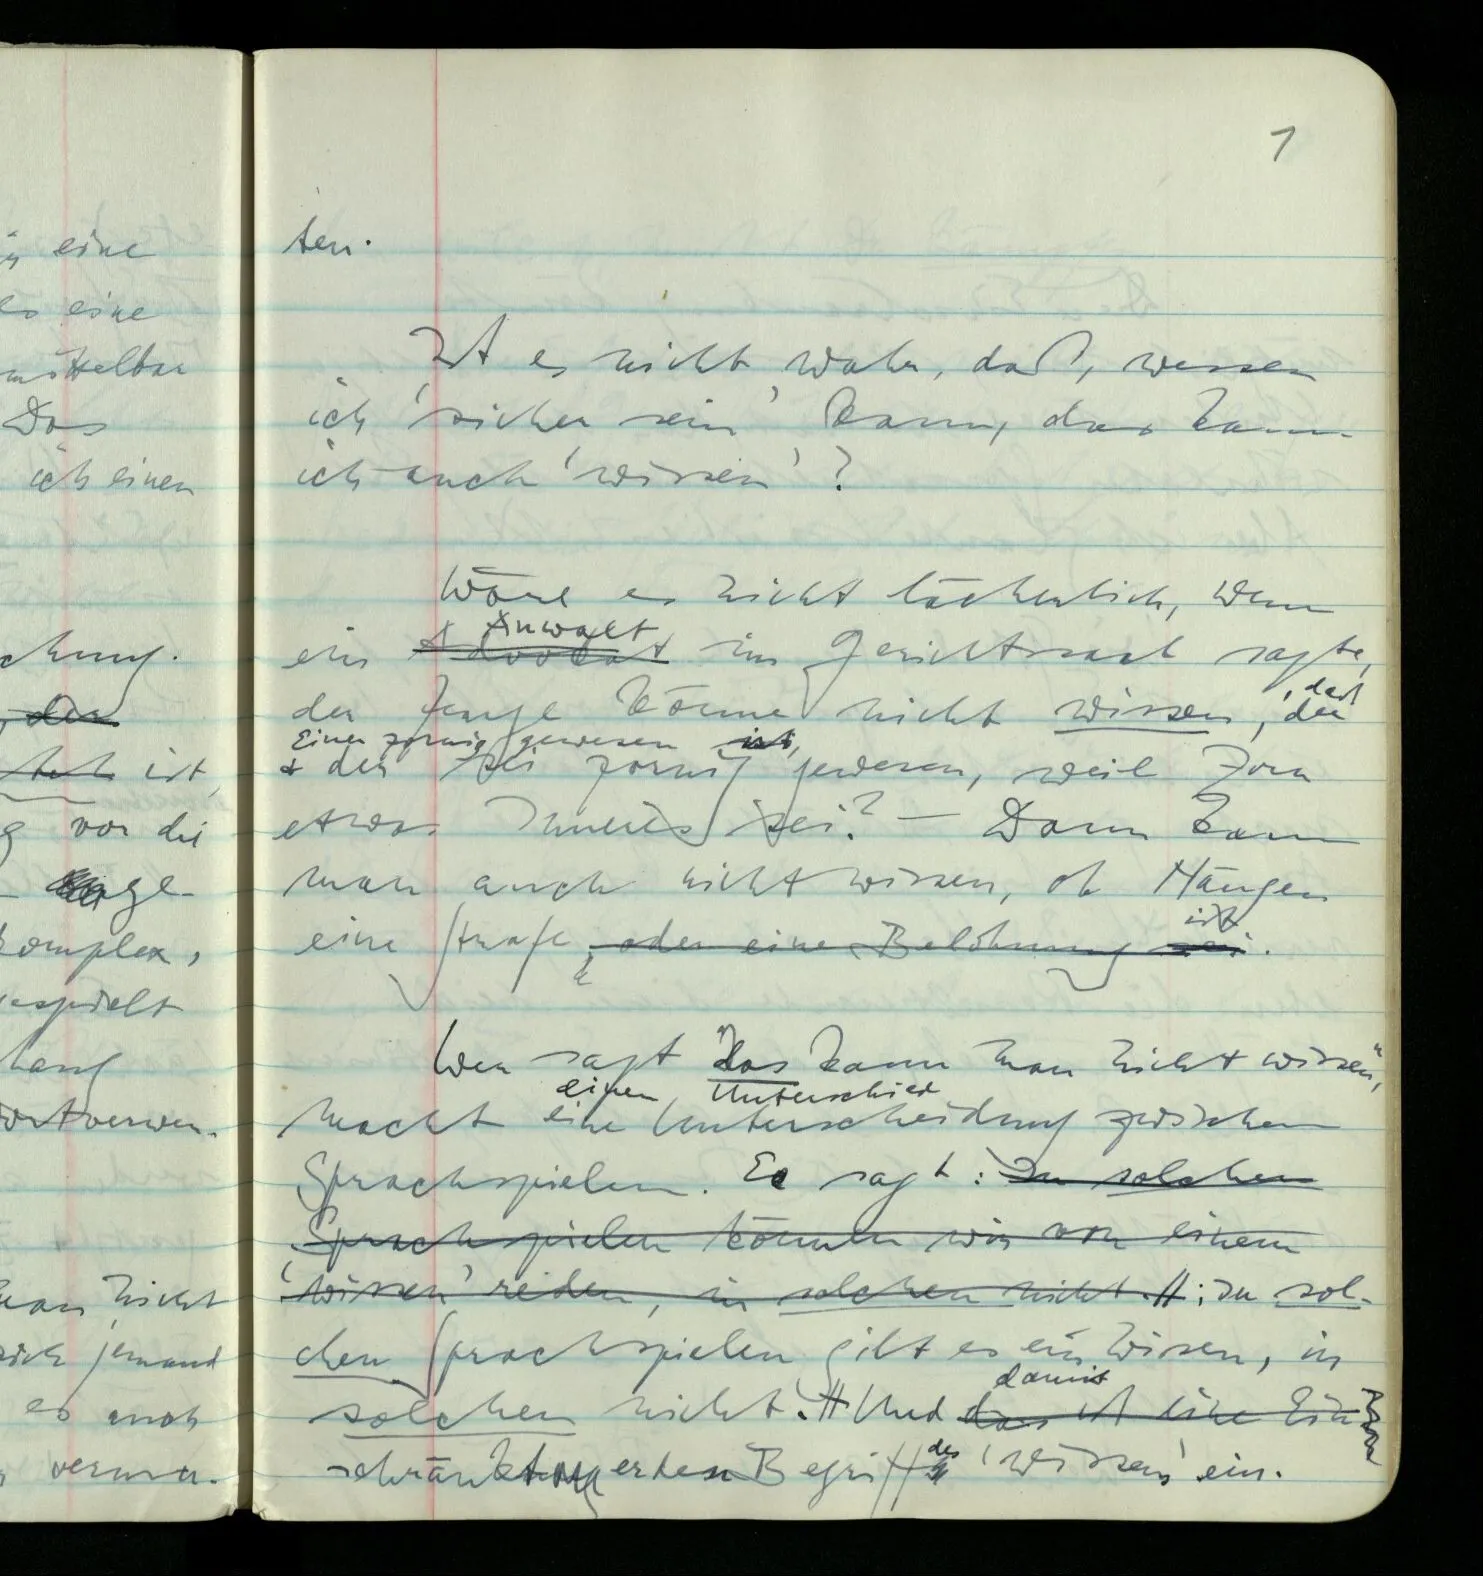 in eine
es eine
mittelbar
Das
ich einen
chung.
, der
ist,
vor die
ge-
komplex,
gespielt
hang
wortverwen-
man nicht
sich jemand
es auch
verwen-
1
ten.
Ist es nicht wahr, daß, wessen
ich 'sicher sein' kann, das kann
ich auch 'wissen'?
Wäre es nicht lächerlich, wenn
Anwalt
ein Advokat im Gerichtssaal sagte,
, daß
der Zeuge könne nicht wissen, der
Einer zornig gewesen ist,
& der sei zornig gewesen, weil Zorn
etwas Inneres sei? — Dann kann
man auch nicht wissen, ob Hängen
ist
eine Strafe, oder eine Belohnung sei.
Wer sagt "Das kann man nicht wissen",
einen Unterschied
macht eine Unterscheidung zwischen
Sprachspielen. Er sagt: In solchen
Sprachspielen können wir von einem
'wissen' reden, in solchen nicht. //; In sol-
chen Sprachspielen gibt es ein Wissen, in
damit
solchen nicht. // Und das ist eine Ein
des
schränkt er den Begriff 'wissen' ein.